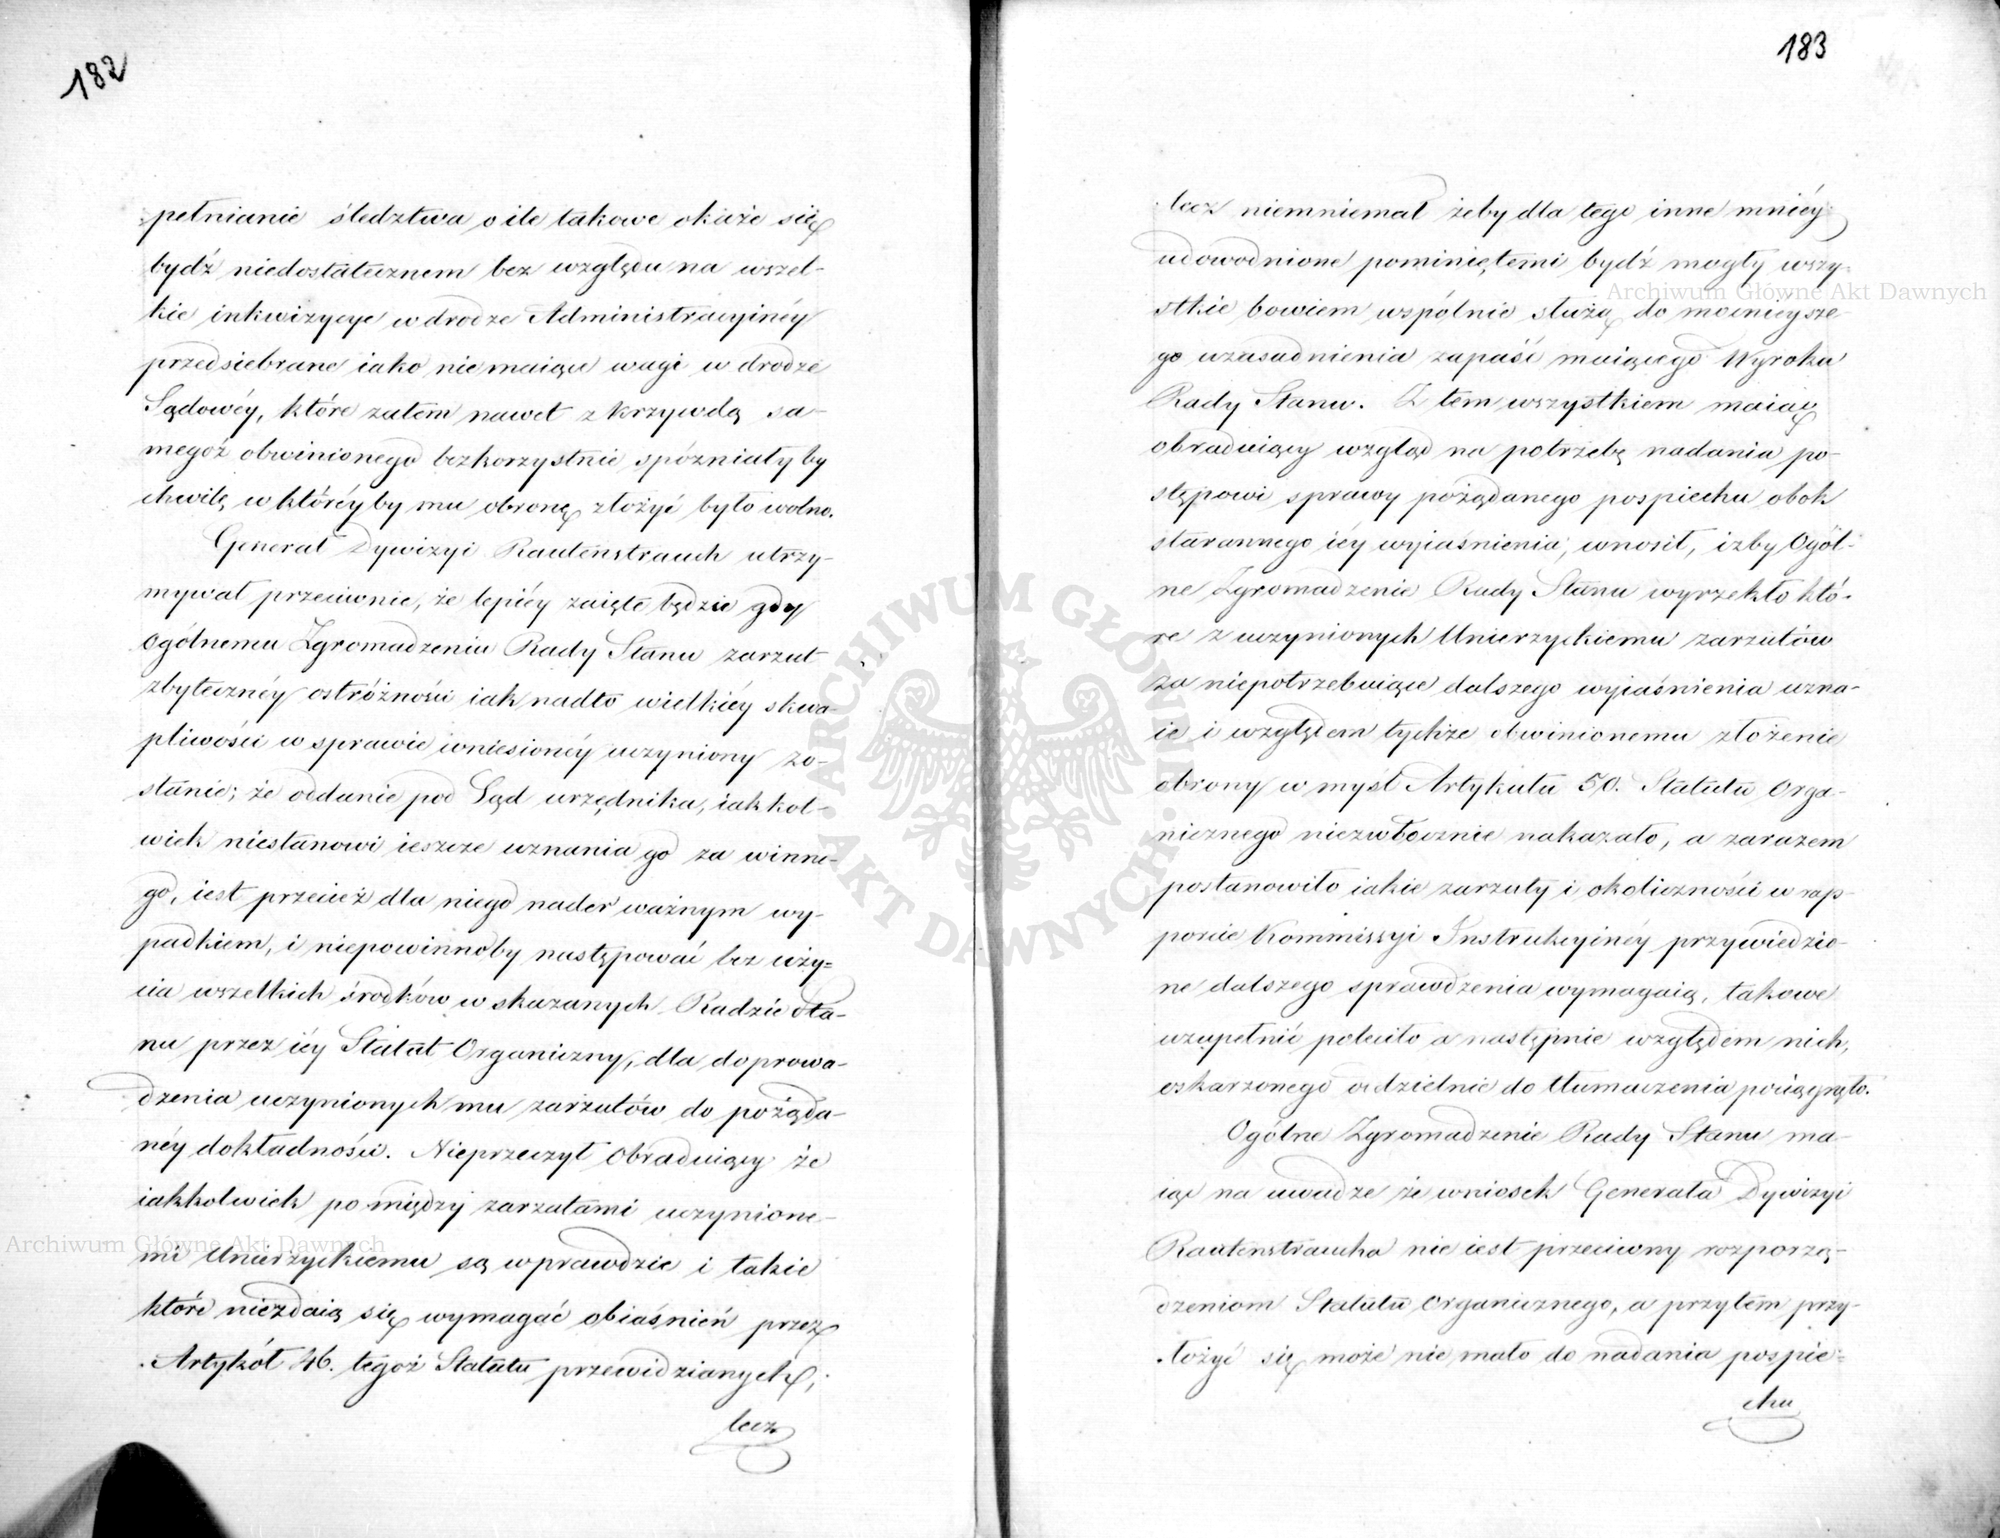 182
pełnianie śledztwa o ile takowe okaże się
bydź niedostatecznem bez względu na wszel-
kie inkwizycye w drodze Administracyinéy
przedsiebrane iako nie maiące wagi w drodze
Sądowéy, które zatem nawet z krzywdą sa-
megoż obwinionego bezkorzystnie spóźniałyby
chwilę w któréyby mu obronę złożyć było wolno.
Generał Dywizyi Rautenstrauch utrzy-
mywał przeciwnie, że lepiéy zaięte będzie gdy
Ogólnemu Zgromadzeniu Rady Stanu zarzut
zbytecznéy ostróżności iak nadto wielkiéy skwa-
pliwości w sprawie wniesionéy uczyniony zo-
stanie; że oddanie pod Sąd urzędnika, iakkol-
wiek niestanowi ieszcze uznania go za winne-
go, iest przecież dla niego nader ważnym wy-
padkiem, i niepowinnoby następować bez uży-
cia wszelkich środków wskazanych Radzie Sta-
nu przez iéy Statut Organiczny, dla doprowa-
dzenia uczynionych mu zarzutów do pożąda-
néy dokładności. Nieprzeczył Obraduiący że
iakkolwiek pomiędzy zarzutami uczynione-
mi Unierzyckiemu są wprawdzie i takie
które niezdaią się wymagać obiaśnień przez
Artykół 46. tegoż Statutu przewidzianych;
lecz
183
lecz niemniemał żeby dla tego inne mniéy
udowodnione pominiętemi bydź mogły wszy-
stkie bowiem wspólnie służą do mocnieysze-
go uzasadnienia zapaść maiącego Wyroku
Rady Stanu. Z tem wszystkiem maiąc
obraduiący wzgląd na potrzebę nadania po-
stępowi sprawy pożądanego pospiechu obok
starannego iéy wyiaśnienia, wnosił, iżby Ogól-
ne Zgromadzenie Rady Stanu wyrzekło któ-
re z uczynionych Unierzyckiemu zarzutów
za niepotrzebuiące dalszego wyiaśnienia uzna-
ie i względem tychże obwinionemu złożenie
obrony w myśl Artykułu 50. Statutu Orga-
nicznego niezwłocznie nakazało, a zarazem
postanowiło iakie zarzuty i okoliczności w rap-
porcie Kommissyi Instrukcyinéy przywiedzio-
ne dalszego sprawdzenia wymagaią, takowe
uzupełnić poleciło a następnie względem nich,
oskarzonego oddzielnie do tłumaczenia pociągnęło.
Ogólne Zgromadzenie Rady Stanu ma-
iąc na uwadze że wniosek Generała Dywizyi
Rautenstraucha nie iest przeciwny rozporzą-
dzeniom Statutu Organicznego, a przytem przy-
łożyć się może nie mało do nadania pospie-
chu
Archiwum Główne Akt Dawnych
Archiwum Główne Akt Dawnych
ARCHIWUM GŁÓWNE AKT DAWNYCH